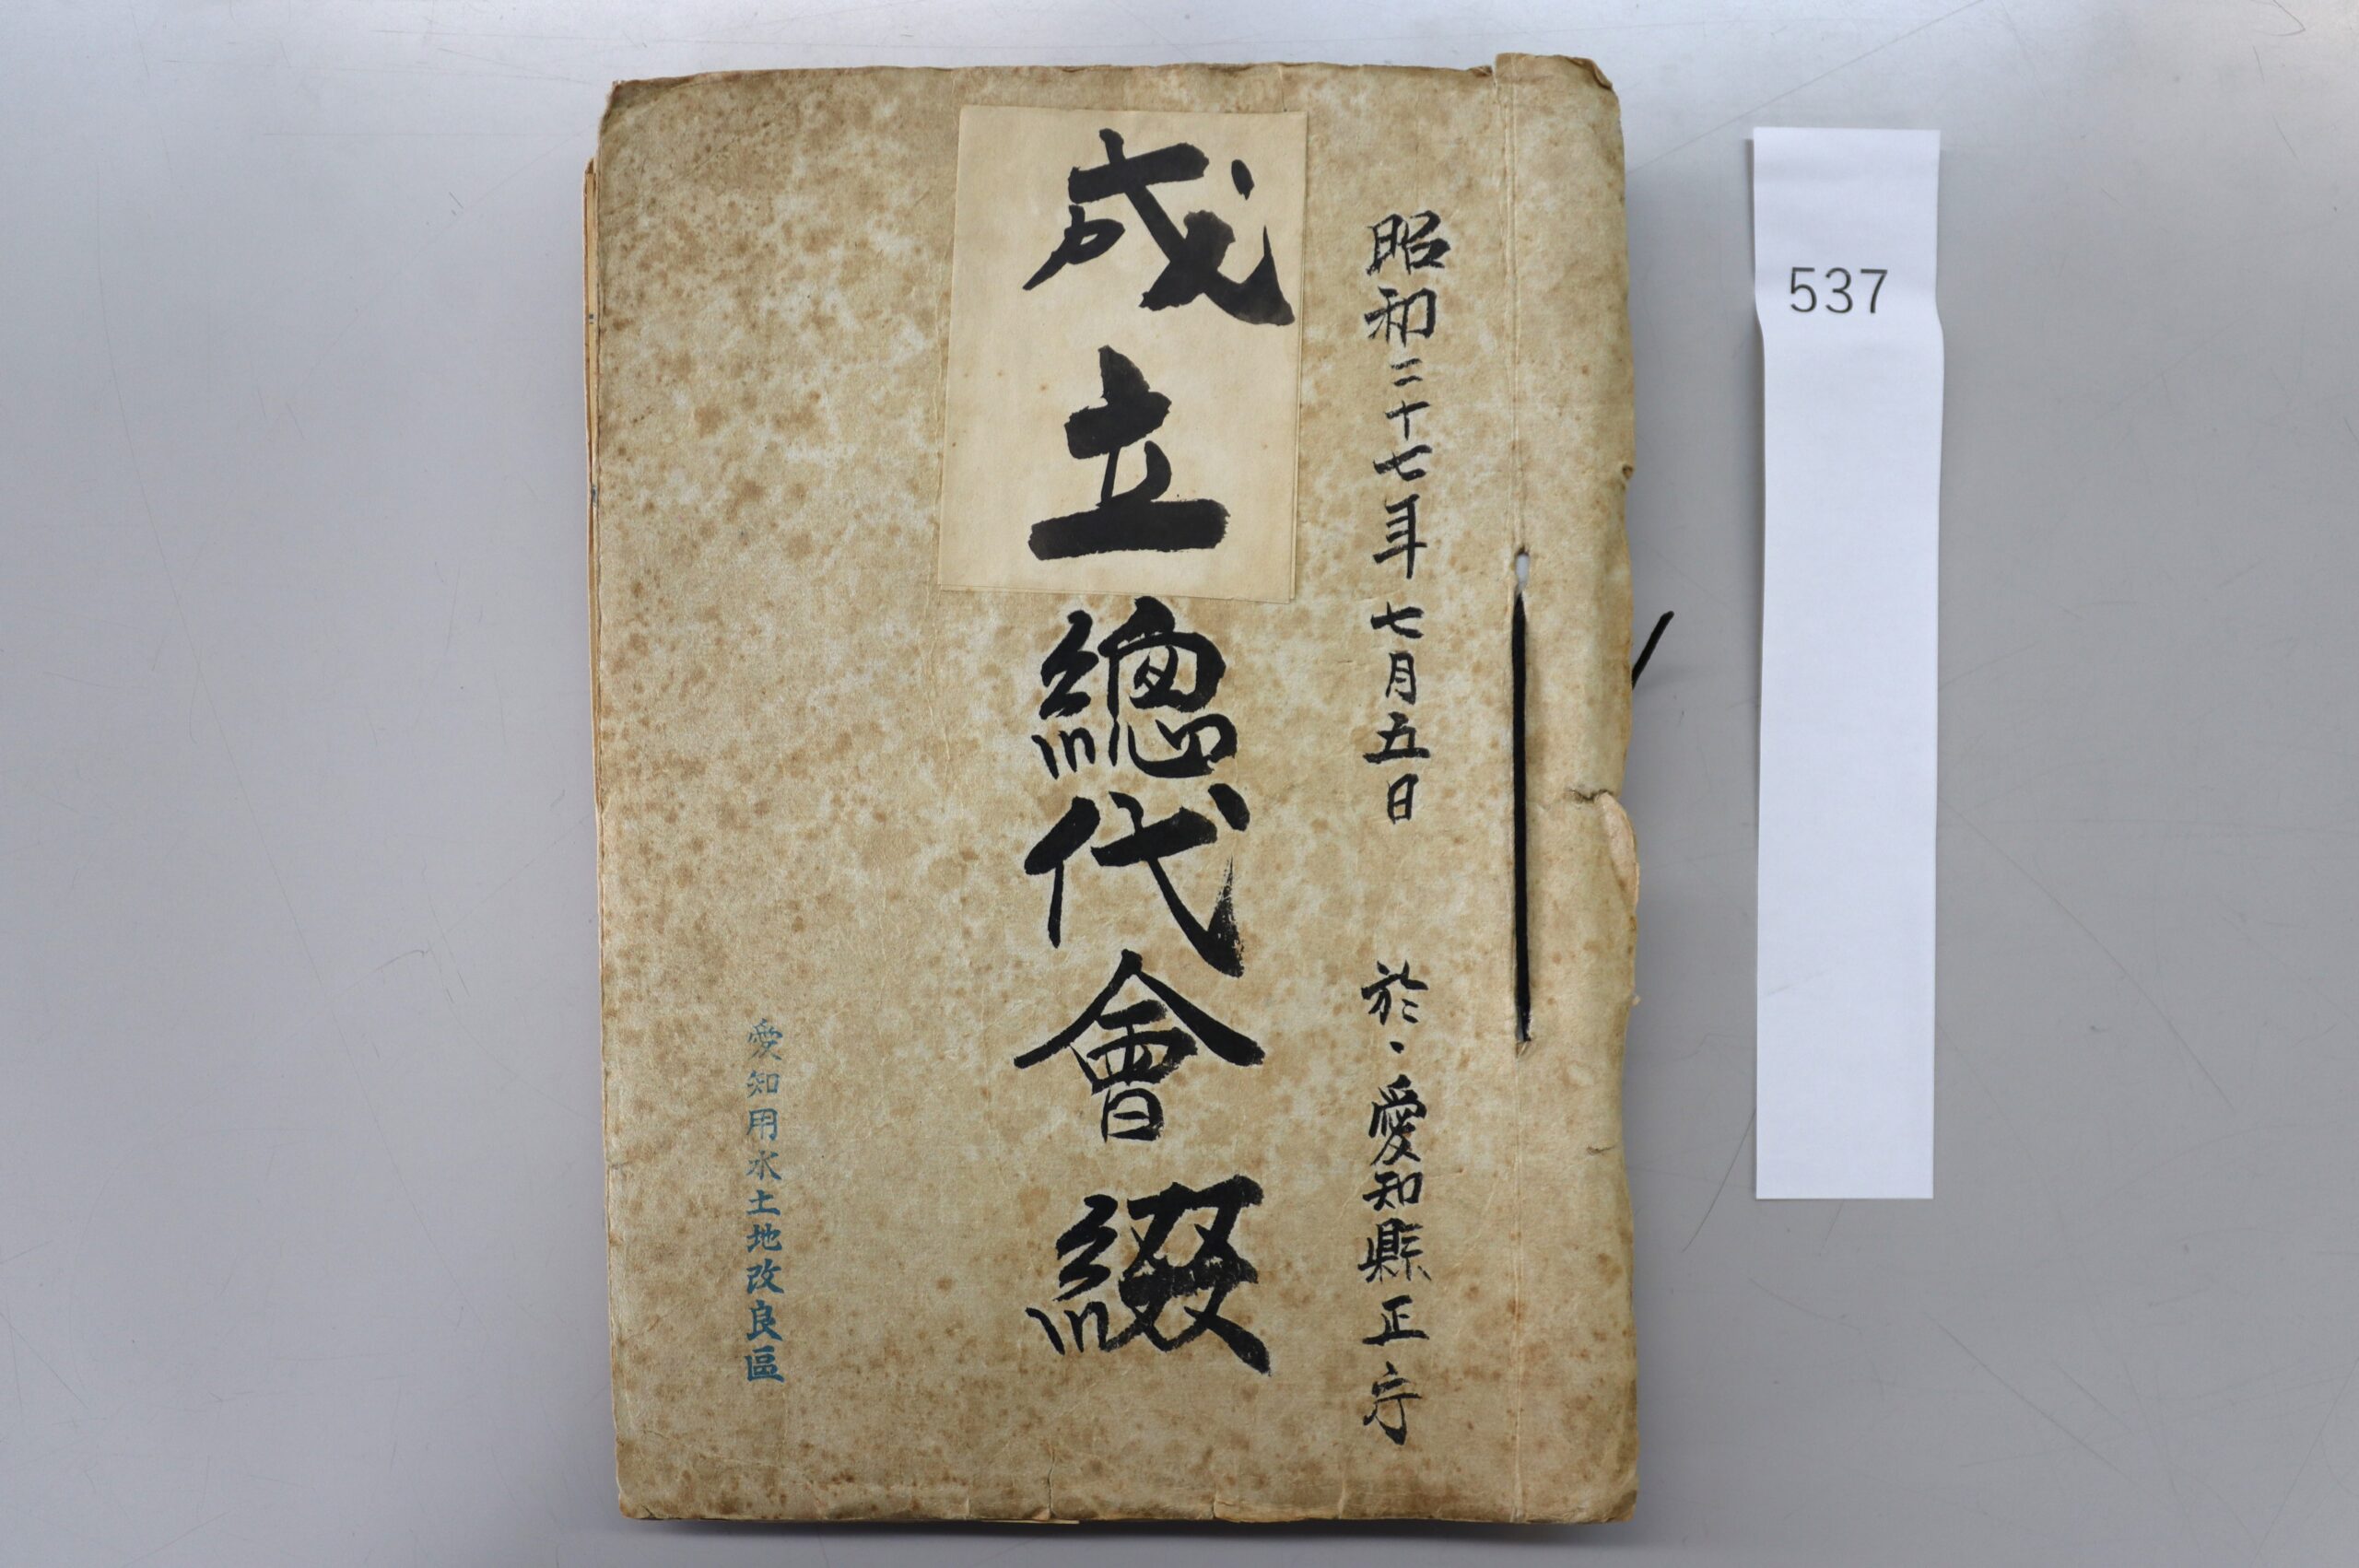 昭和二十七年七月五日 於・愛知縣正庁
成立總代會綴
愛知用水土地改良區
537